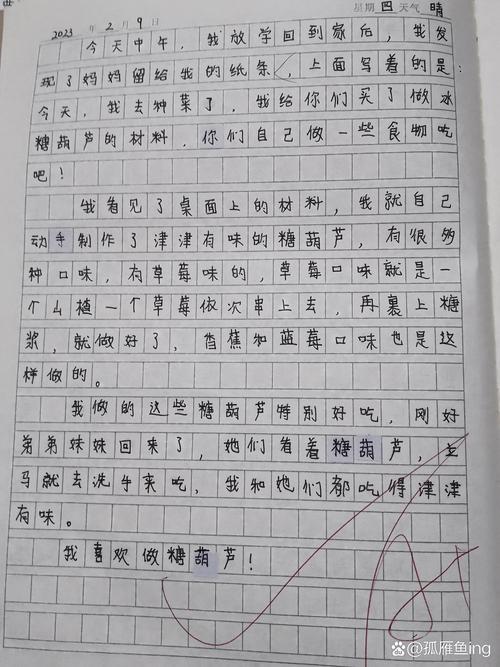 2023 年 2 月 9 日 星期 四 天气 晴
今天中午，我放学回到家后，我发
现了妈妈留给我的纸条，上面写着的是：
今天，我去种菜了，我给你们买了做冰
糖葫芦的材料，你们自己做一些食物吃
吧！
我看见了桌面上的材料，我就自己
动手制作了津津有味的糖葫芦，有很多
种口味，有草莓味的，草莓口味就是一
个山植一个草莓依次串上去，再裹上糖
浆，就做好了，香蕉和蓝莓口味也是这
样做的。
我做的这些糖葫芦特别好吃，刚好
弟弟妹妹回来了，她们看着糖葫芦，立
马就去洗手来吃，我和她们都吃得津津
有味。
我喜欢做糖葫芦！
@孤雁鱼ing